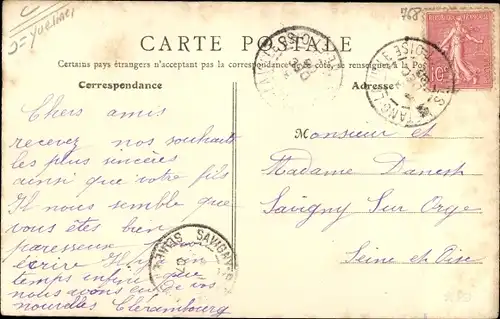 D= Yvelines
768
CARTE POSTALE
Certains pays étrangers n'acceptant pas la correspondance de ce côté, se renseigner à la Poste
Correspondance
Adresse
10c
Chers amis
recevez nos souhaits
les plus sincères
ainsi que votre fils
Il nous semble que
vous êtes bien
paresseux
écrire Il y
temps que
nous avons eu de vos
nouvelles Clérambourg
Monsieur et
Madame
Savigny Sur Orge
Seine et Oise
SAVIGNY
SEINE